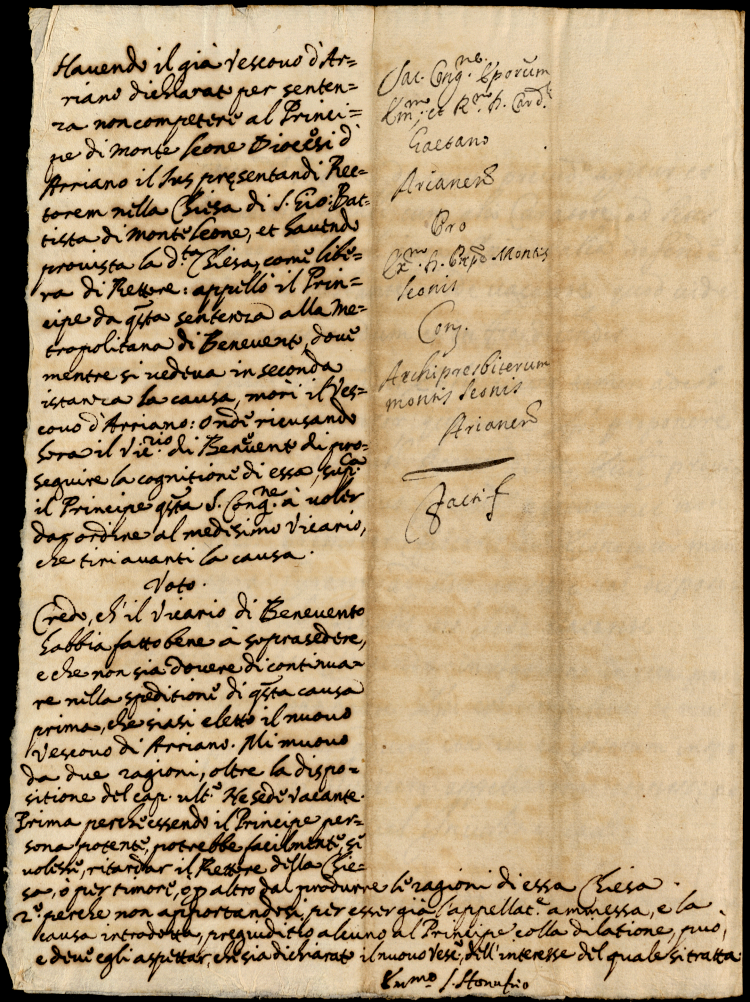 Havendo il già Vescovo d'Ar=
riano dichiarato per senten=
za non competere al Princi=
pe di Monte Leone Diocesi d'
Arriano il Ius presentandi Rec=
torem nella Chiesa di S. Gio: Bat=
tista di Monteleone, et havendo
provista la d.ta Chiesa, come libe=
ra di Rettore: appellò il Prin=
cipe da q̃sta sentenza alla Me=
tropolitana di Benevento, dove
mentre si vedeva in seconda
istanza la causa, morì il Ves=
covo d'Arriano: onde ricusando
hora il Vic.rio di Benevento di pro=
seguire la cognitione di essa, sup.ca
il Principe q̃sta S. Cong.ne à voler
dar ordine al medesimo Vicario,
che tiri avanti la causa.
Voto.
Credo, ch'il Vicario di Benevento
habbia fatto bene à soprasedere,
e che non sia dovere di continua=
re nella speditione di q̃sta causa
prima, che siasi eletto il nuovo
Vescovo di Arriano. Mi muovo
da due ragioni, oltre la dispo=
sitione del cap. ult.o Ne sede vacante.
Prima perche essendo il Principe per=
sona potente, potrebbe facilmente, se
volesse, ritardar il Rettore della Chie=
sa, ò per timore, ò p altro dal produrre le ragioni di essa Chiesa.
2.o perche non apportandosi, per esser già l'appellat.e ammessa, e la
causa introdotta, pregiuditio alcuno al Principe colla dilatione, può,
e deve egli aspettar, che sia dichiarato il nuovo Vesc.o, dell'interesse del quale si tratta
Em.mo S. Honofrio
Sac. Cong.ne Ep̃orum
Em.mo et R.mo D. Card.
Gaetano
Arianen
Pro
Ex.mo D. Prĩpe Montis
Leonis
Con.
Archipresbiterum
montis Leonis
Arianen
Facti